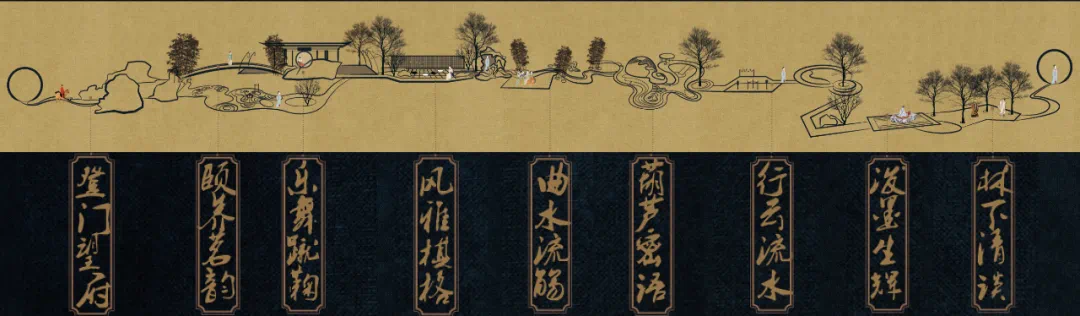 登门望府
颐养茗韵
乐舞蹴鞠
风雅棋格
曲水流觞
葫芦密语
行云流水
泼墨生辉
林下清谈